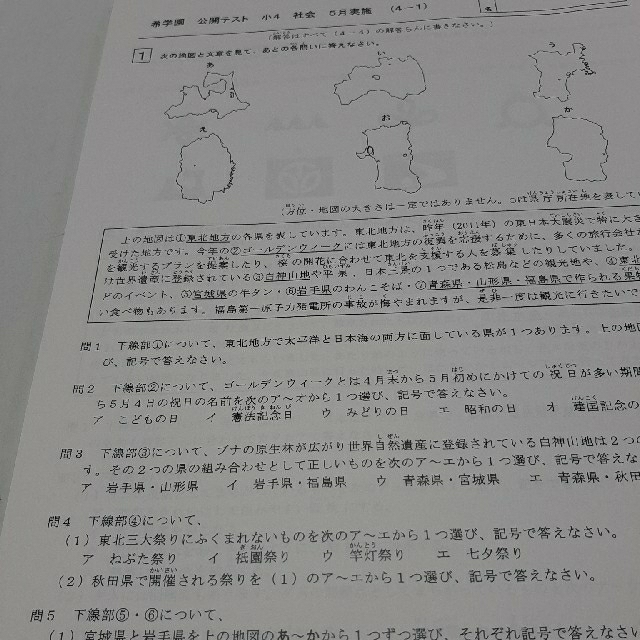 希学園 公開テスト 小4 社会 5月実施 (4-1)
名
(解答はすべて (4-4) の解答らんに書きなさい。)
1 次の地図と文章を見て、あとの各問いに答えなさい。
あ い う
え お か
(方位・地図の大きさは一定ではありません。□は県庁所在地を表してい
上の地図は①東北地方の各県を表しています。東北地方は、昨年(2011年)の東日本大震災で特に大き
受けた地方です。今年の②ゴールデンウィークには東北地方の復興を応援するために、多くの旅行会社が
を観光するプランを提案したり、桜の開花に合わせて東北を支援する人を募集したりしていました。
け世界遺産に登録されている③白神山地や平泉、日本三景の1つである松島などの観光地や、④東北
どのイベント、⑤宮城県の牛タン・⑥岩手県のわんこそば・⑦青森県・山形県・福島県で作られる果物
い食べ物もあります。福島第一原子力発電所の事故が悔やまれますが、是非一度は観光に行きたいで
問1 下線部①について、東北地方で太平洋と日本海の両方に面している県が1つあります。上の地図
び、記号で答えなさい。
問2 下線部②について、ゴールデンウィークとは4月末から5月初めにかけての祝日が多い期間
ち5月4日の祝日の名前を次のア〜オから1つ選び、記号で答えなさい。
ア こどもの日 イ 憲法記念日 ウ みどりの日 エ 昭和の日 オ 建国記念の
問3 下線部③について、ブナの原生林が広がり世界自然遺産に登録されている白神山地は2つの
す。その2つの県の組み合わせとして正しいものを次のア〜エから1つ選び、記号で答えなさ
ア 岩手県・山形県 イ 岩手県・福島県 ウ 青森県・宮城県 エ 青森県・秋田
問4 下線部④について、
(1) 東北三大祭りにふくまれないものを次のア〜エから1つ選び、記号で答えなさい。
ア ねぶた祭り イ 祇園祭り ウ 竿灯祭り エ 七夕祭り
(2) 秋田県で開催される祭りを (1) のア〜エから1つ選び、記号で答えなさい。
問5 下線部⑤・⑥について、
(1) 宮城県と岩手県を上の地図のあ〜かから1つずつ選び、それぞれ記号で答えなさい